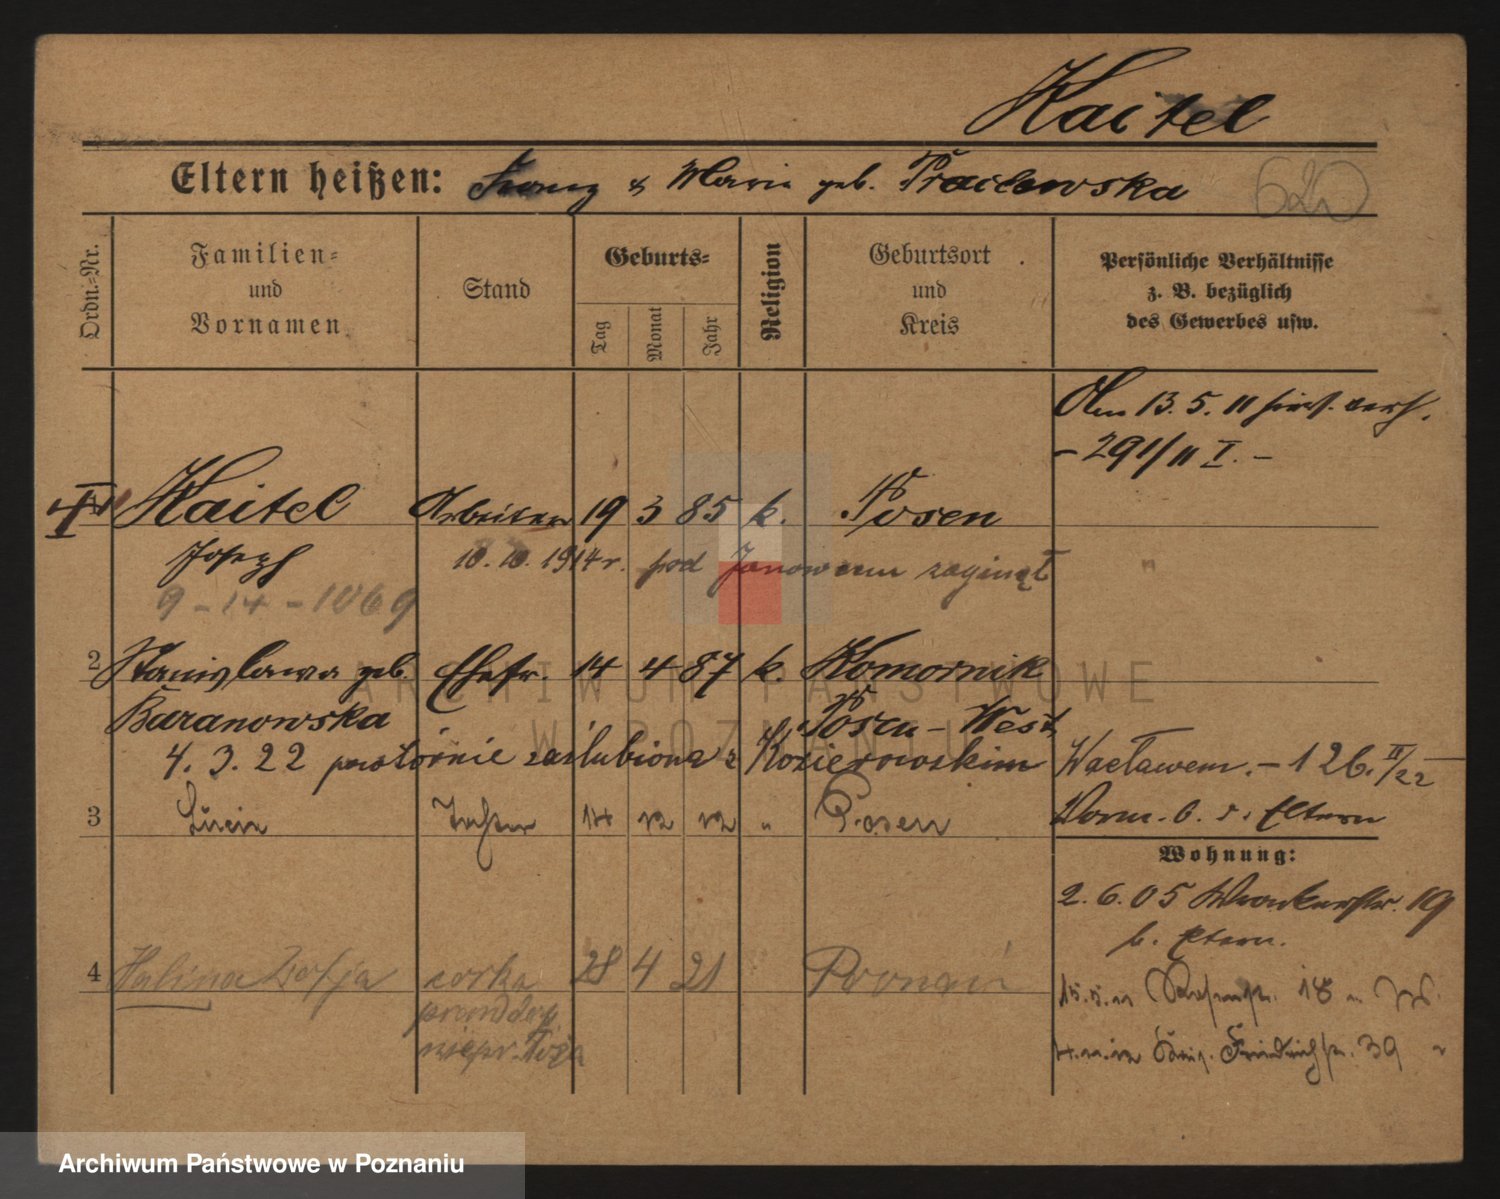 Kaitel
Eltern heißen: Franz & Marie geb.
620
Ordn.=Nr.
Familien=
und
Vornamen
Stand
Geburts=
Tag
Monat
Jahr
Religion
Geburtsort
und
Kreis
Persönliche Verhältnisse
z. B. bezüglich
des Gewerbes usw.
Am 13.5.11
- 291/11 I. -
Kaitel Arbeiter 19 3 85 k. Posen
Joseph 10.10.1914 r. pod Janowem zaginął
9-14-1069
2 Stanislawa geb. Ehefr. 14 4 87 k. Komornik
Baranowska Posen-West
4.3.22 powtórnie zaślubiona z Kozierowskim Wacławem. - 126. II/22
3 Lucia Tochter 14 12 12 " Posen
b. d. Eltern
Wohnung:
2.6.05 Wronkerstr. 19
b. Eltern.
4 Halina Zofja córka 28 4 21 Poznań
18
39
ARCHIWUM PAŃSTWOWE
W POZNANIU
Archiwum Państwowe w Poznaniu